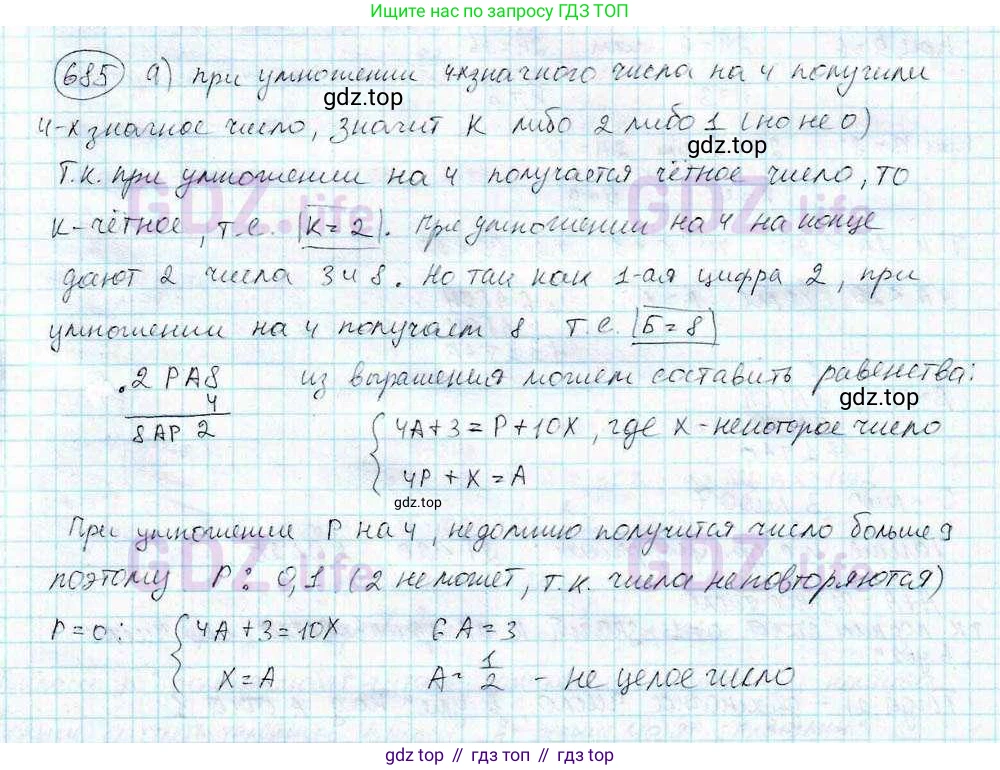 Ищите по запросу ГДЗ ТОП
685 а) при умножении 4хзначного числа на 4 получили
gdz.top
4-хзначное число, значит К либо 2 либо 1 (но не 0)
gdz.top
Т.к. при умножении на 4 получается чётное число, то
GDZ.life GDZ.life
К-чётное, т.е. К=2. При умножении на 4 на конце
дают 2 числа 3 и 8. Но так как 1-ая цифра 2, при
умножении на 4 получаем 8 т.е. Б=8
2РА8 из выражения можем составить равенства:
4
gdz.top
8АР2 4А+3=Р+10Х, где Х-некоторое число
4Р+Х=А
gdz.top
При умножение Р на 4, недолжно получится число больше 9
GDZ.life GDZ.life
поэтому Р: 0,1 (2 не может, т.к. числа неповторяются)
Р=0: 4А+3=10Х 6А=3
Х=А А=1/2 - не целое число
gdz.top // гдз топ // gdz.top